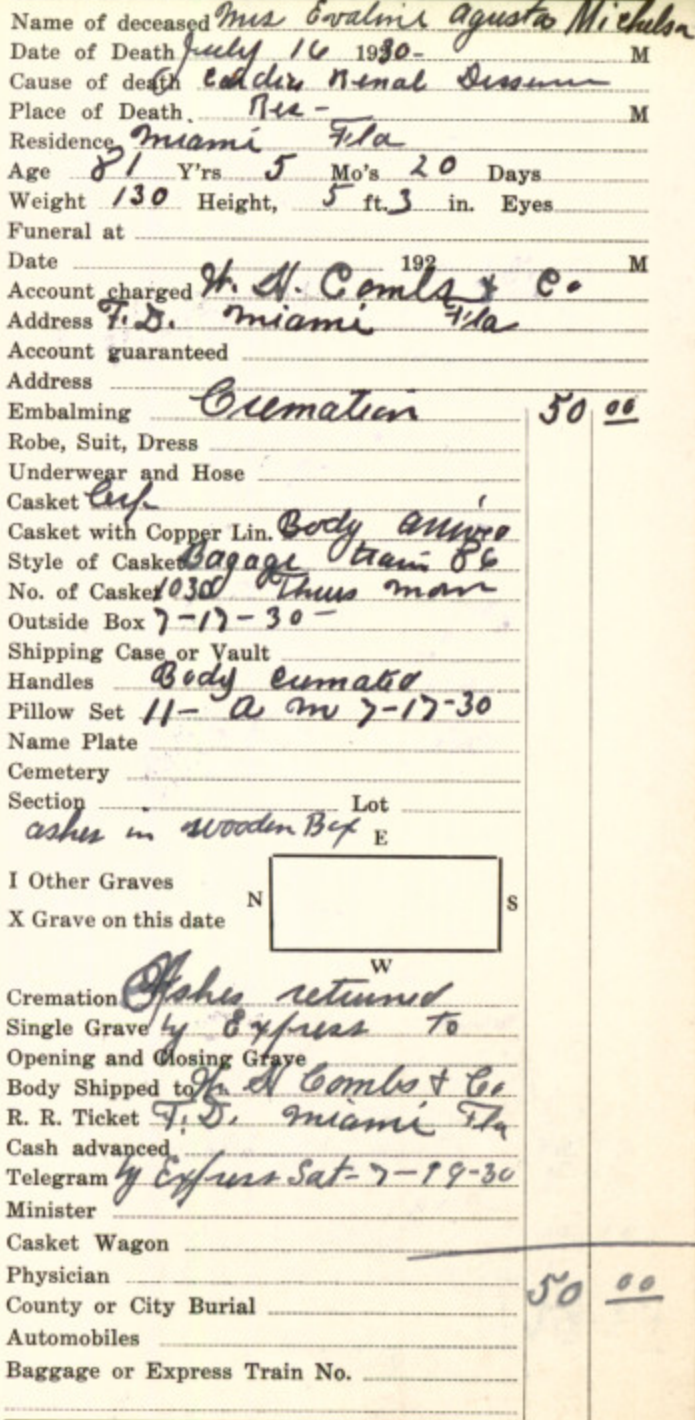 Name of deceased Mrs Evaline Agusta Michelson
Date of Death July 16 1930- M
Cause of death Cardio Renal Disease
Place of Death. Res- M
Residence Miami Fla
Age 81 Y'rs 5 Mo's 20 Days
Weight 130 Height, 5 ft. 3 in. Eyes
Funeral at
Date 192 M
Account charged W. H. Combs & Co
Address F.D. Miami Fla
Account guaranteed
Address
Embalming Cremation 50 00
Robe, Suit, Dress
Underwear and Hose
Casket
Casket with Copper Lin. Body arrived
Style of Casket Bagage train 86
No. of Casket 1030 Thurs morn
Outside Box 7-17-30-
Shipping Case or Vault
Handles Body cremated
Pillow Set 11- a m 7-17-30
Name Plate
Cemetery
Section Lot
ashes in wooden Box
E
I Other Graves
N
S
X Grave on this date
W
Cremation Ashes returned
Single Grave by Express to
Opening and Closing Grave
Body Shipped to W H Combs & Co
R. R. Ticket F.D. Miami Fla
Cash advanced
Telegram by Express Sat-7-19-30
Minister
Casket Wagon
Physician 50 00
County or City Burial
Automobiles
Baggage or Express Train No.